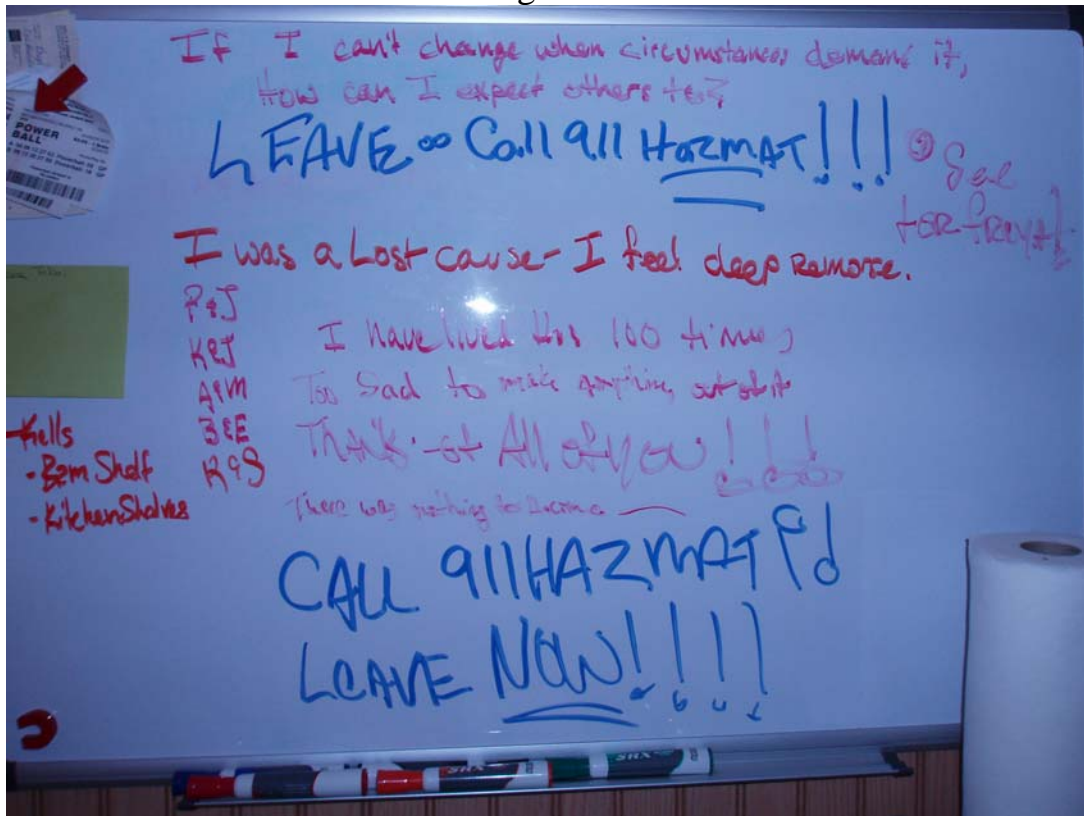 If I can't change when circumstances demand it,
How can I expect others to?
LEAVE Call 911 HazMAT!!!
See
I was a Lost cause - I feel deep Remorse.
P&J
K&J
A&M
B&E
R&S
I Have lived this 100 times
Too Sad to make anything out of it
Think of All of you!!!
There was nothing to
Kells
- Bzm Shelf
- Kitchen Shelves
CALL 911 HAZMAT Pd
LEAVE NOW!!!!
POWER
BALL